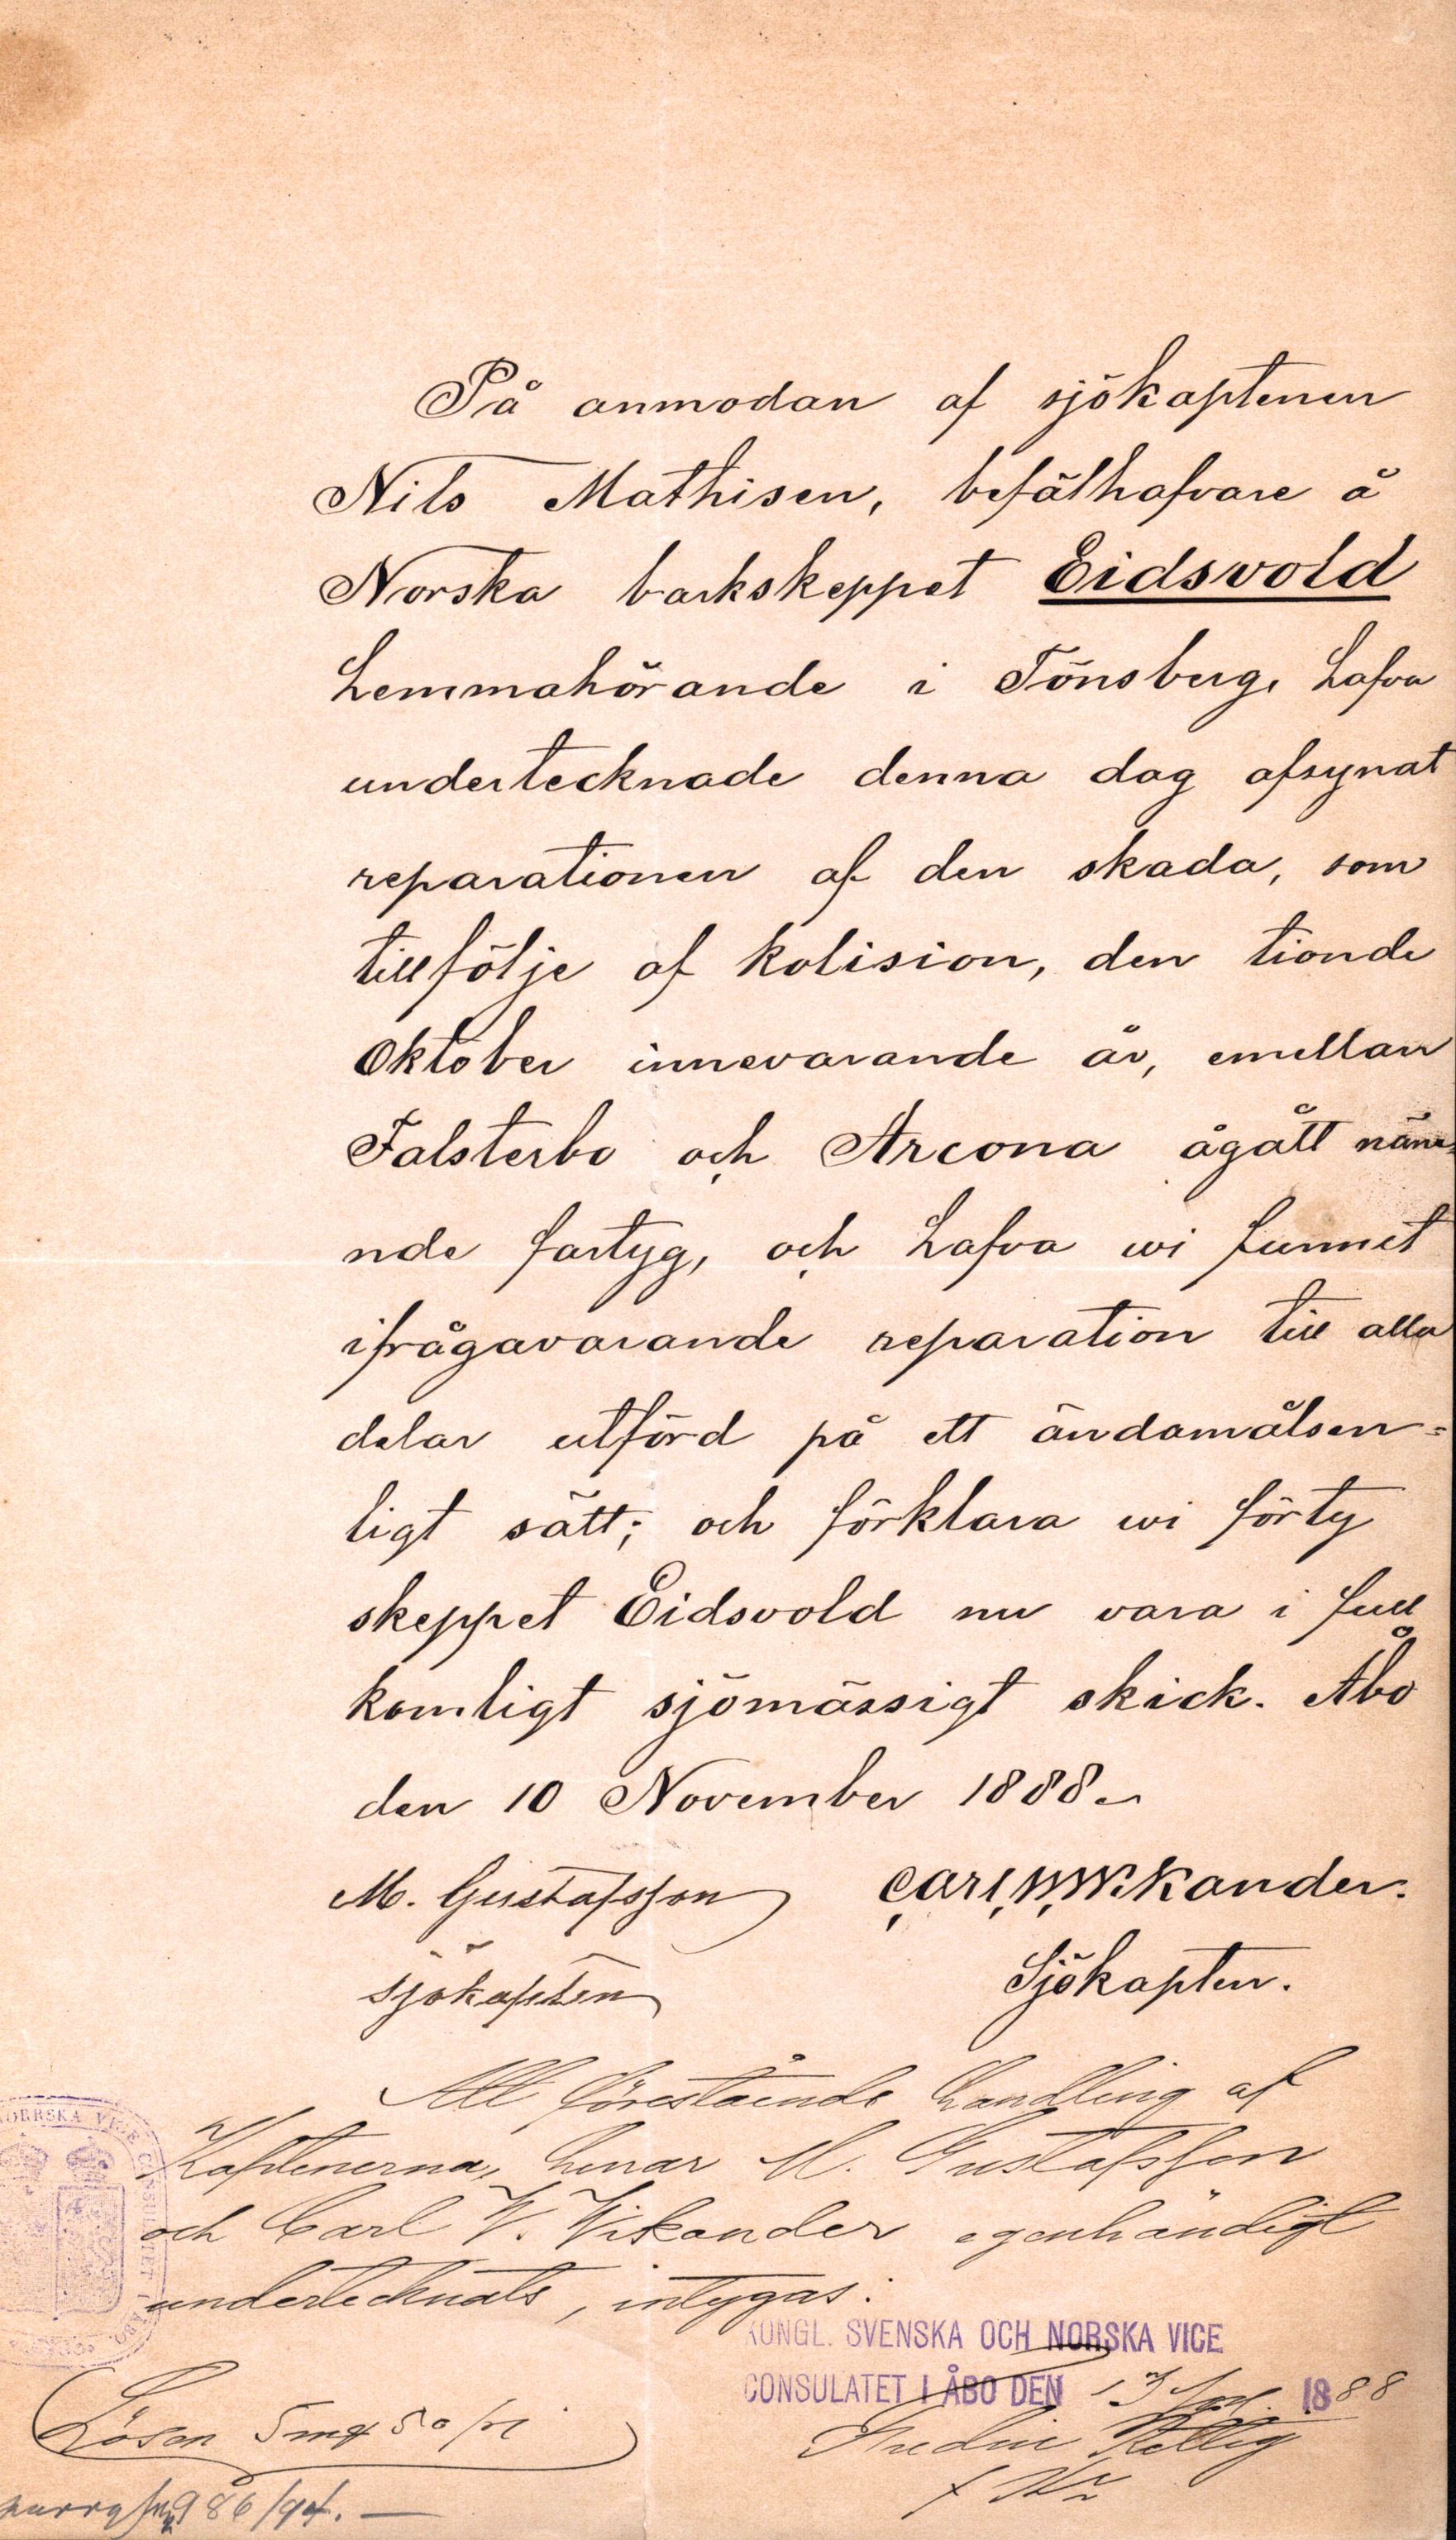 På anmodan af sjökaptenen
Nils Mathisen, befälhafvare å
Norska barkskeppet Eidsvold
hemmahörande i Tönsberg, hafva
undertecknade denna dag afsynat
reparationen af den skada, som
tillfölje af kolision, den tionde
Oktober innevarande år, emellan
Falsterbo och Arcona ågått näm-
nde fartyg, och hafva wi funnit
ifrågavarande reparation till alla
delar utförd på ett ändamålsen=
ligt sätt; och förklara wi förty
skeppet Eidsvold nu vara i full
komligt sjömässigt skick. Åbo
den 10 November 1888.
M. Gustafsson Carl W. Wikander.
sjökapten Sjökapten.
Att förestående handling af
Kaptenerna, herrar M. Gustafsson
och Carl V. Vikander egenhändigt
undertecknats, intygas:
KONGL. SVENSKA OCH NORSKA VICE
CONSULATET I ÅBO DEN 13 1888
NORRSKA VICE CONSULATET I ÅBO
Lösen 5 mk 50 pi
Fredric Rettig
986/94. —